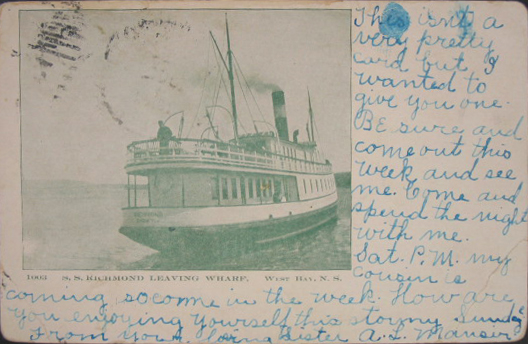 This isn't a
very pretty
card but I
wanted to
give you one.
BE sure and
come out this
week and see
me. Come and
spend the night
with me.
Sat. P.M. my
cousin is
1003 S. S. RICHMOND LEAVING WHARF. WEST BAY, N. S.
coming so come in the week. How are
you enjoying yourself this stormy Sunday
From your loving sister A. L.